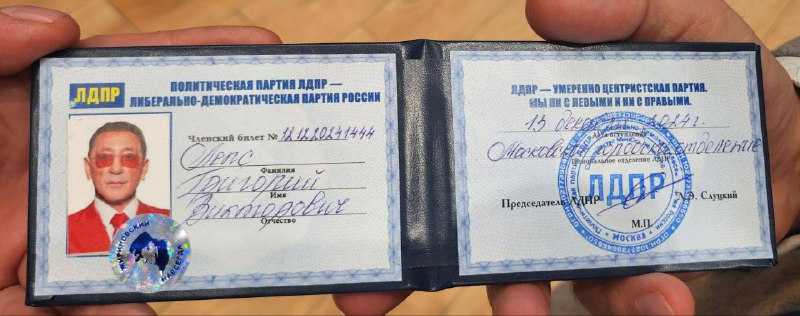 ЛДПР
ПОЛИТИЧЕСКАЯ ПАРТИЯ ЛДПР —
ЛИБЕРАЛЬНО-ДЕМОКРАТИЧЕСКАЯ ПАРТИЯ РОССИИ
Членский билет № 12.12.20241444
Лепс
Фамилия
Григорий
Имя
Викторович
Отчество
ЛДПР — УМЕРЕННО ЦЕНТРИСТСКАЯ ПАРТИЯ.
МЫ НИ С ЛЕВЫМИ И НИ С ПРАВЫМИ.
13 2024г.
Дата вступления
отделение
Региональное отделение ЛДПР
ЛДПР
Председатель ЛДПР Л.Э. Слуцкий
М.П.
МОСКВА